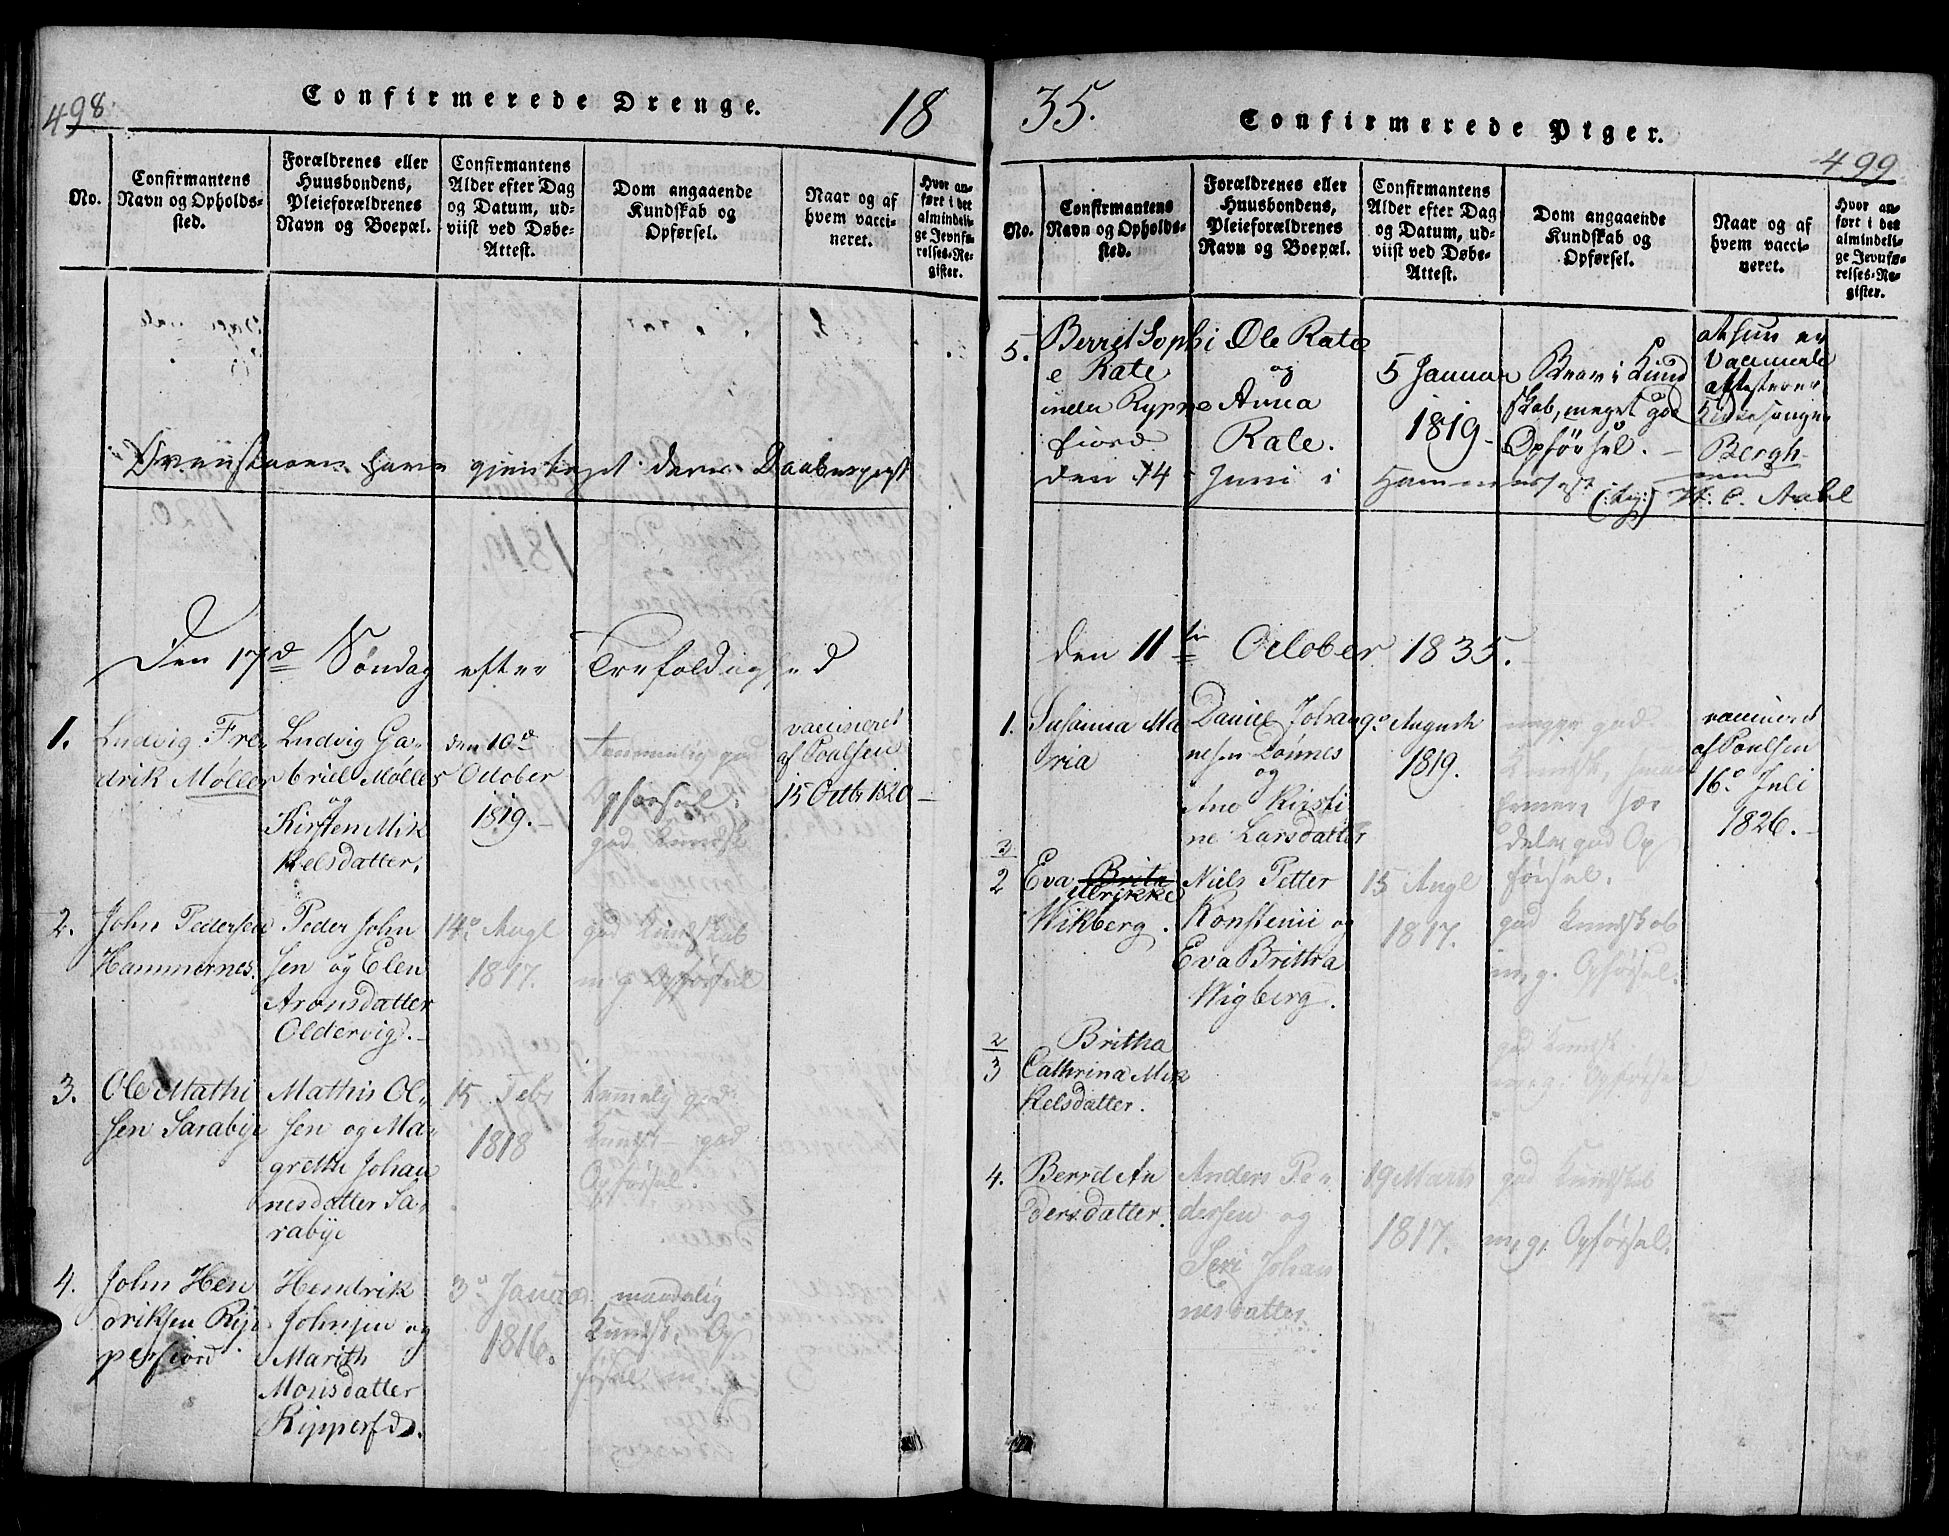 498.
Confirmerede Drenge.
18
No.
Confirmantens
Navn og Opholds-
sted.
Forældrenes eller
Huusbondens,
Pleieforældrenes
Navn og Boepæl.
Confirmantens
Alder efter Dag
og Datum, ud-
viist ved Døbe-
Attest.
Dom angaaende
Kundskab og
Opførsel.
Naar og af
hvem vacci-
neret.
Hvor an-
ført i det
almindeli-
ge Jevnfø-
relses-Re-
gister.
have gjentaget deres Daabespagt
Den 17de Søndag efter Trefoldighed
1.
Ludvig Fre-
drik Møller
Ludvig Ga-
briel Møller
og
Kirsten Mik
kelsdatter.
den 10de
October
1819.-
temmelig god
Opførsel.
god Kundsk
vaccineret
af Poulsen
15 Octbr 1820
2.
John Pedersen
Hammernes.
Peder John
sen og Elen
Aronsdatter
Oldervig.-
14de Augt
1817.
god Kundskab
m g Opførsel
3.
Ole Mathi
sen Sarabye
Mathis Ol-
sen og Ma-
grethe Johan
nesdatter Sa-
rabye
15 Febr
1818
temelig god
Kundsk- god
Opførsel.
4.
John Hen
driksen Ryp
perfiord
Hendrik
Johnsen og
Marith
Monsdatter
Ripperfd.
3de Januar
1816.
maadelig
Kundsk, Op
førsel m g
35.
Confirmerede Piger.
499
No.
Confirmantens
Navn og Opholds-
sted.
Forældrenes eller
Huusbondens,
Pleieforældrenes
Navn og Boepæl.
Confirmantens
Alder efter Dag
og Datum, ud-
viist ved Døbe-
Attest.
Dom angaaende
Kundskab og
Opførsel.
Naar og af
hvem vacci-
neret.
Hvor an-
ført i det
almindeli-
ge Jevnfø-
relses-Re-
gister.
5.
Berret Sophi
e Rate
inden Rypne
fiord
Ole Rate
og
Anna
Rate.
5 Januar
1819-
Brav i Kund
skab, meget god
Opførsel. -
at hun er
Vaccineret
attesterer
Kirkesanger
Bergh-
den 14 Juni i Hammerfest
Aall
den 11te October 1835.
1.
Susanna Ma
ria
Daniel Johan
nesen Dønnes
og
Ane Kirsti
ne Larsdatter
9de August
1819.
meget god
Kundsk,
deles god Op
førsel.
vaccineret
af Poulsen
16de Juli
1826.-
3
2
Eva Brita
Ulrikke
Wikberg.
Niels Petter
Konstenii og
Eva Brittha
Wigberg.
15 Augt
1817.
god Kundskab
m, g. Opførsel.
2
3
Britha
Cathrina Mik
kelsdatter.
god Kundsk
m, g. Opførsel
4.
Berret An
dersdatter.
Anders Pe-
dersen og
Seri Johan
nesdatter
19 Marts
1817.
god Kundskab
m, g, Opførsel.